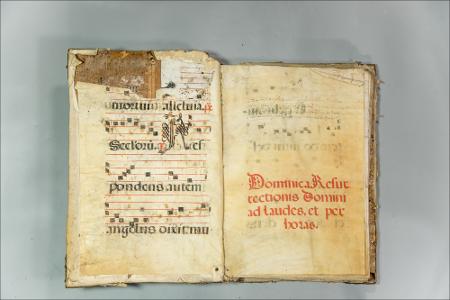 mortuum alleluia. ps
Seclorũ. a. Res
pondens autem
angelus dixit mu
Dominica Resur
rectionis Domini
ad laudes, et per
horas.